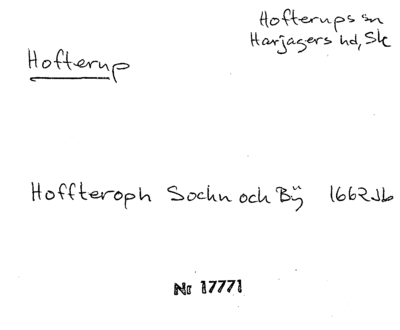 Hofterups sn
Harjagers hd, Sk
Hofterup
Hoffteroph Sochn och Bÿ 1662 Jb
Nr 17771